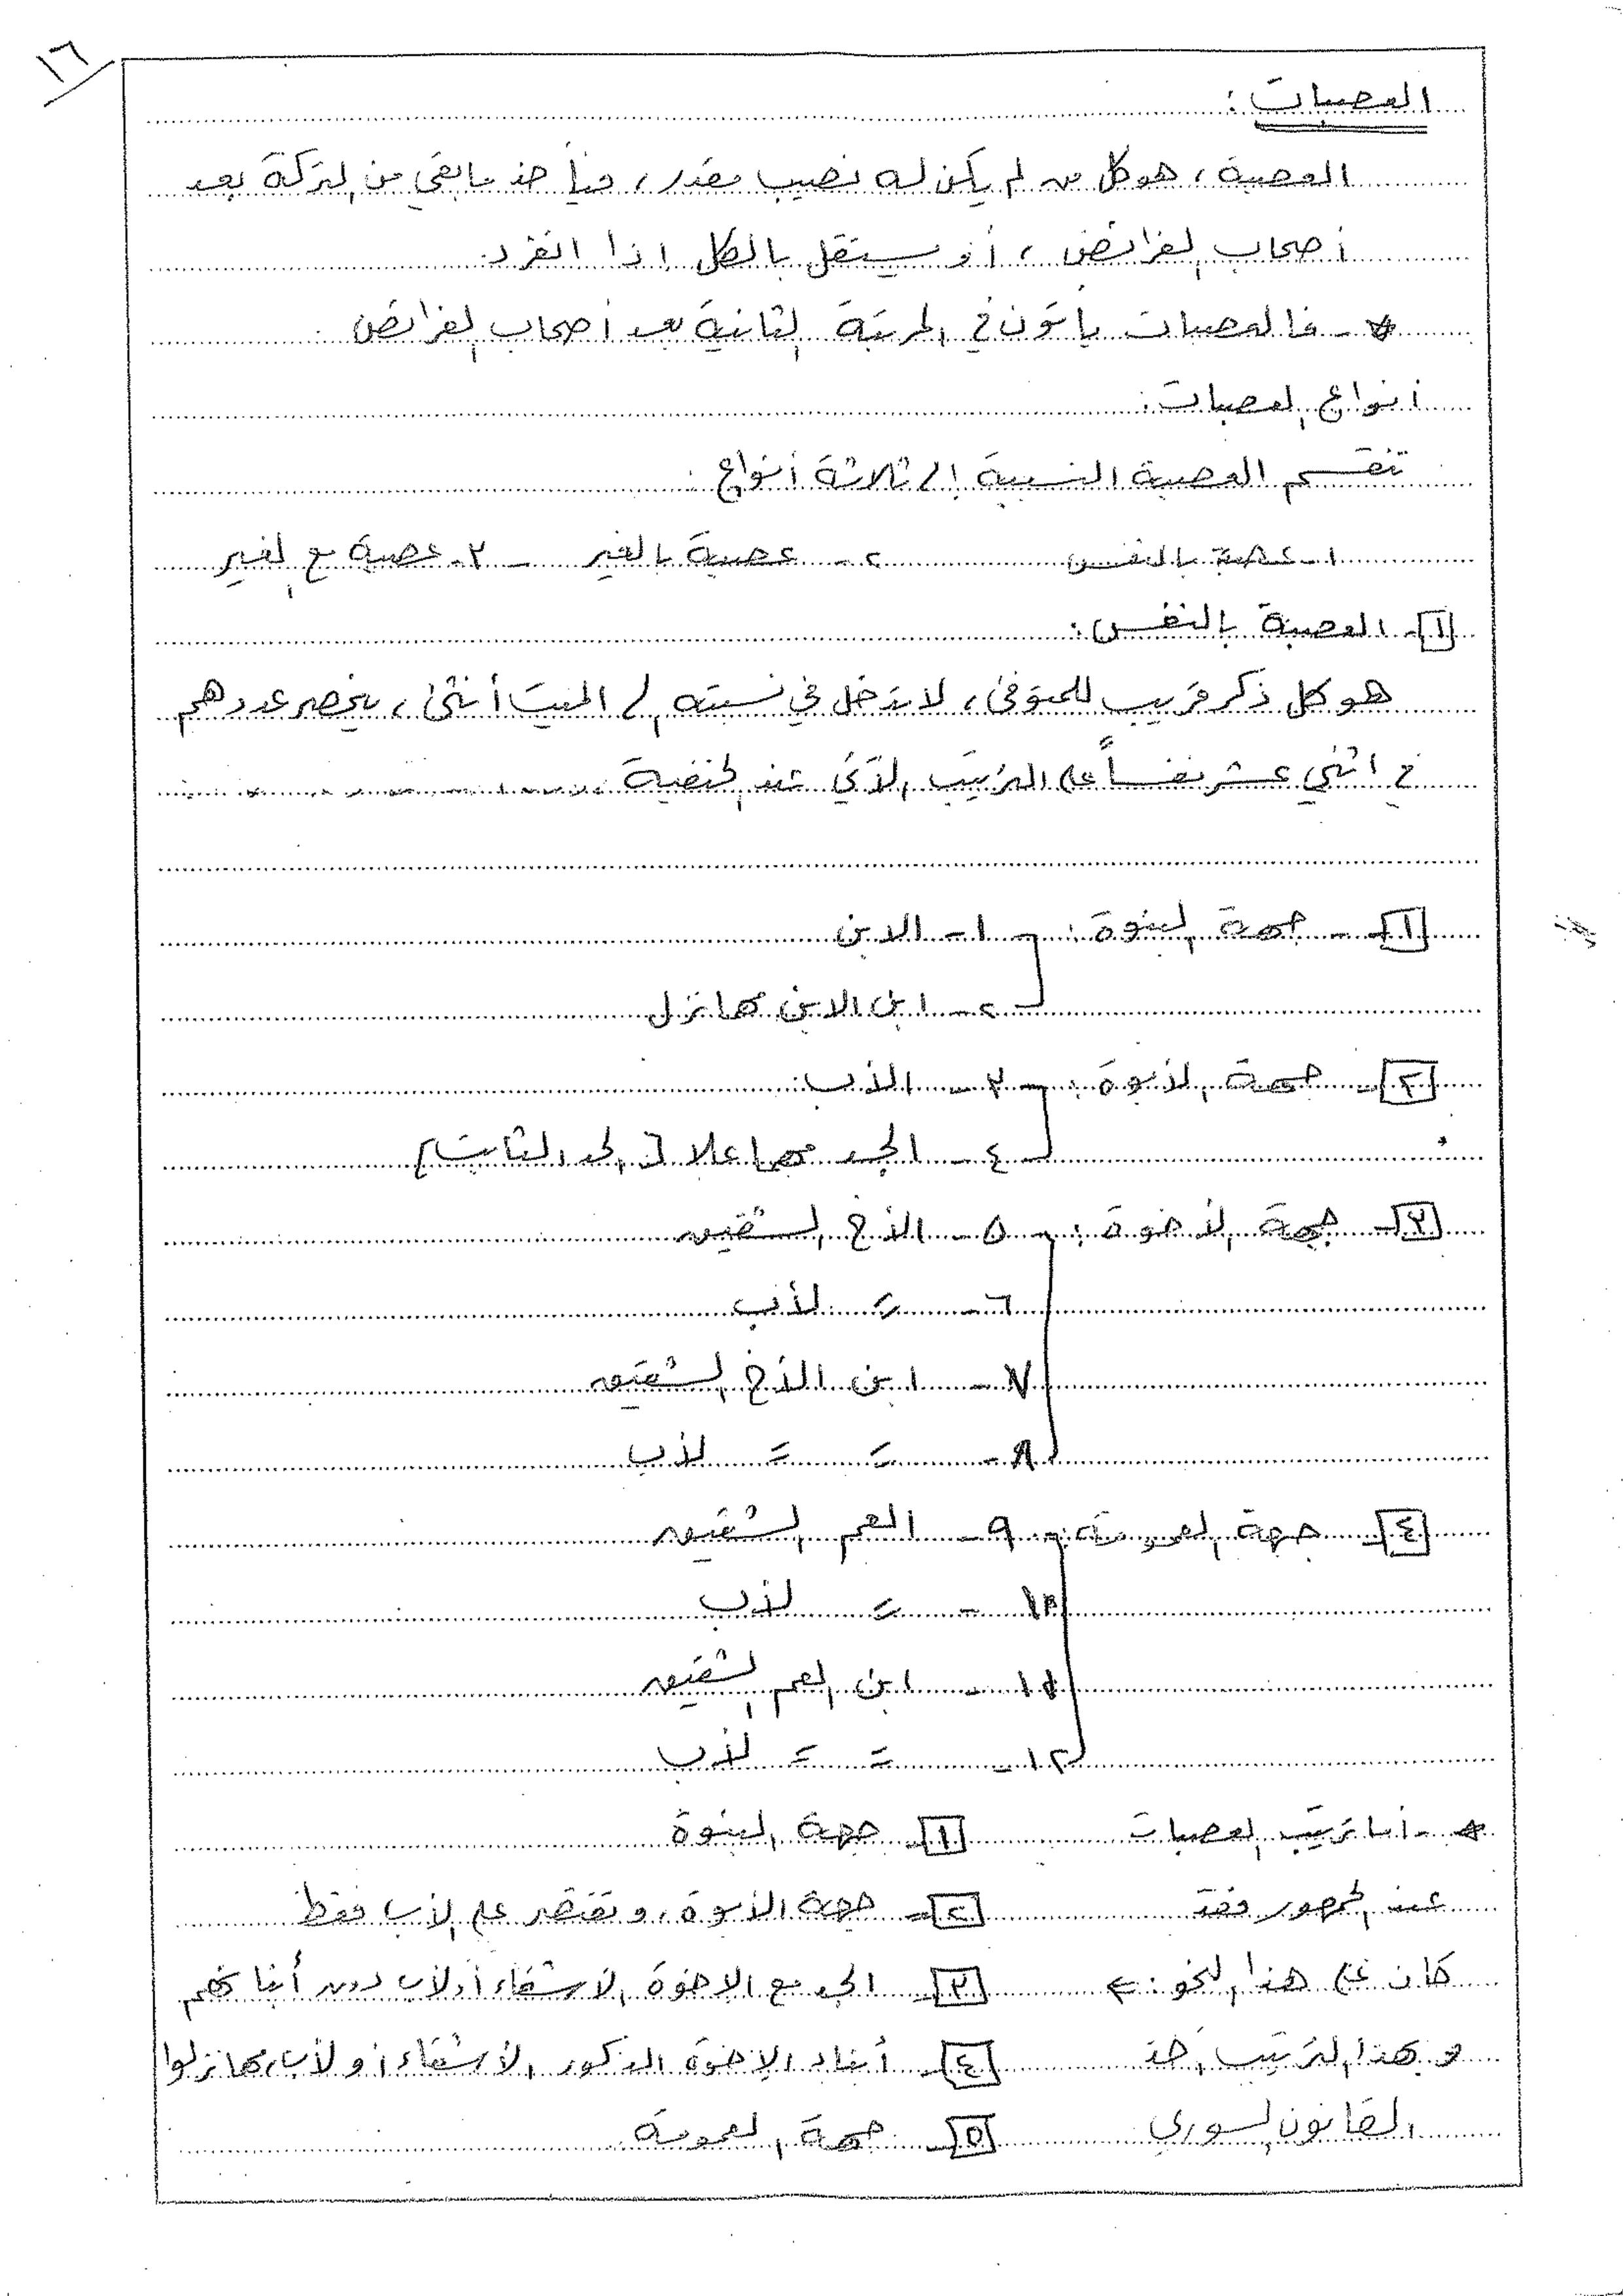 ١٦
العصبات :
العصبة ، هو كل من لم يكن له نصيب مقدر ، فيأخذ ما بقي من التركة بعد
أصحاب الفرائض ، أو يستقل بالكل إذا انفرد .
* - فالعصبات يأتون في المرتبة الثانية بعد أصحاب الفرائض .
أنواع العصبات :
تنقسم العصبة النسبية إلى ثلاثة أنواع :
١ - عصبة بالنفس ٢ - عصبة بالغير - ٣ - عصبة مع الغير
١ - العصبة بالنفس :
هو كل ذكر قريب للمتوفى ، لا تدخل في نسبته إلى الميت أنثى ، ينحصر عددهم
في اثني عشر نفساً على الترتيب الآتي عند الحنفية
١ - جهة البنوة : ١ - الابن
٢ - ابن الابن مهما نزل
٢ - جهة الأبوة : ٣ - الأب
٤ - الجد مهما علا [ الجد الثابت ]
٣ - جهة الأخوة : ٥ - الأخ الشقيق
٦ - = لأب
٧ - ابن الأخ الشقيق
٨ - = = لأب
٤ - جهة العمومة : ٩ - العم الشقيق
١٠ - = لأب
١١ - ابن العم الشقيق
١٢ - = = لأب
* - أما ترتيب العصبات ١ - جهة البنوة
عند الجمهور فقد ٢ - جهة الأبوة ، وتقتصر على الأب فقط
كان على هذا النحو : ← ٣ - الجد مع الاخوة الأشقاء أو لأب دون أبنائهم
وبهذا الترتيب أخذ ٤ - أبناء الإخوة الذكور الأشقاء أو لأب مهما نزلوا
القانون السوري ٥ - جهة العمومة